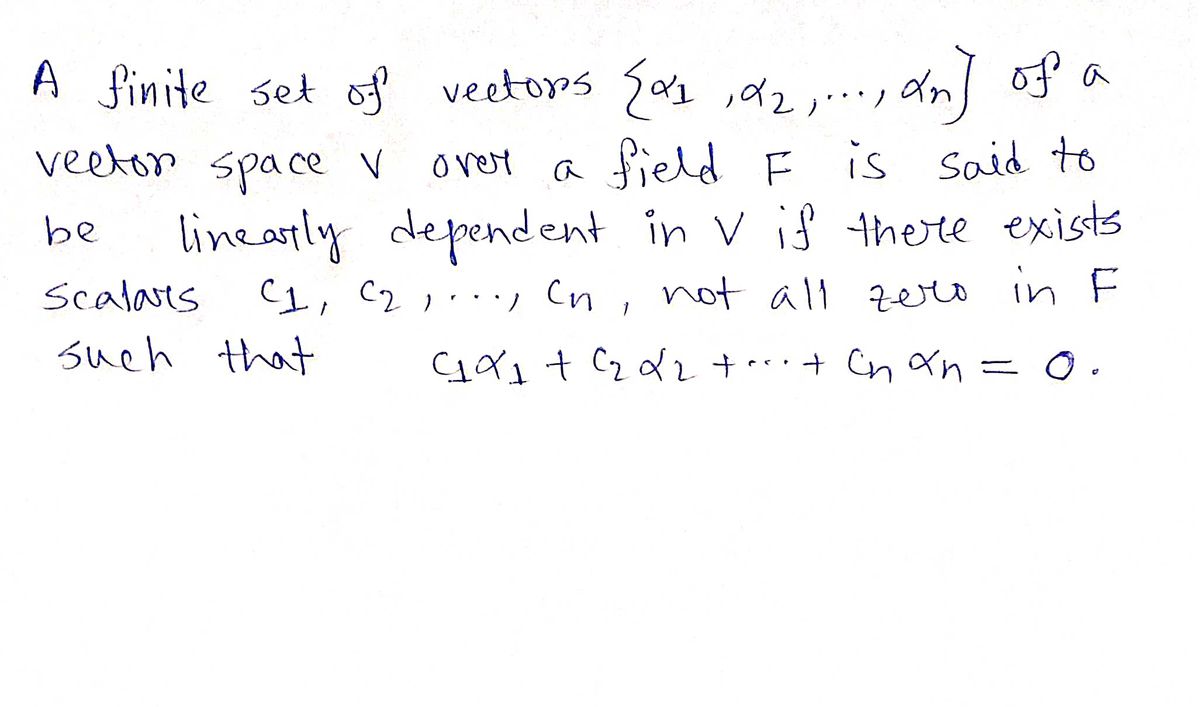 A finite set of vectors {α1, α2, ..., αn} of a
vector space V over a field F is said to
be linearly dependent in V if there exists
scalars c1, c2, ..., cn, not all zero in F
such that c1α1 + c2α2 + ... + cnαn = 0.